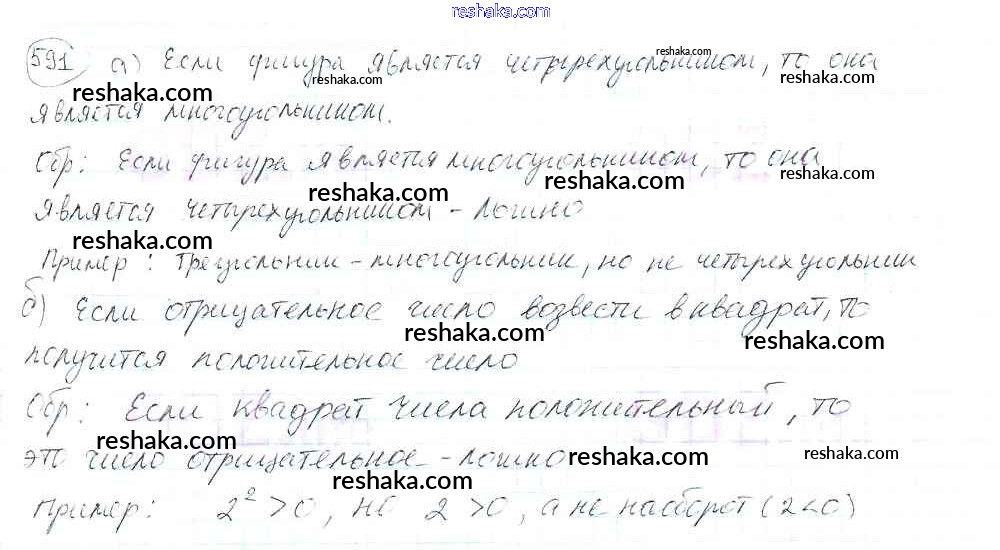 reshaka.com
591 а) Если фигура является четырехугольником, то она
является многоугольником.
Обр: Если фигура является многоугольником, то она
является четырехугольником - ложно
Пример: Треугольник - многоугольник, но не четырехугольник
б) Если отрицательное число возвести в квадрат, то
получится положительное число
Обр: Если квадрат числа положительный, то
это число отрицательное - ложно
Пример: 2² > 0, но 2 > 0, а не наоборот (2 < 0)
reshaka.com
reshaka.com
reshaka.com
reshaka.com
reshaka.com
reshaka.com
reshaka.com
reshaka.com
reshaka.com
reshaka.com
reshaka.com
reshaka.com
reshaka.com
reshaka.com